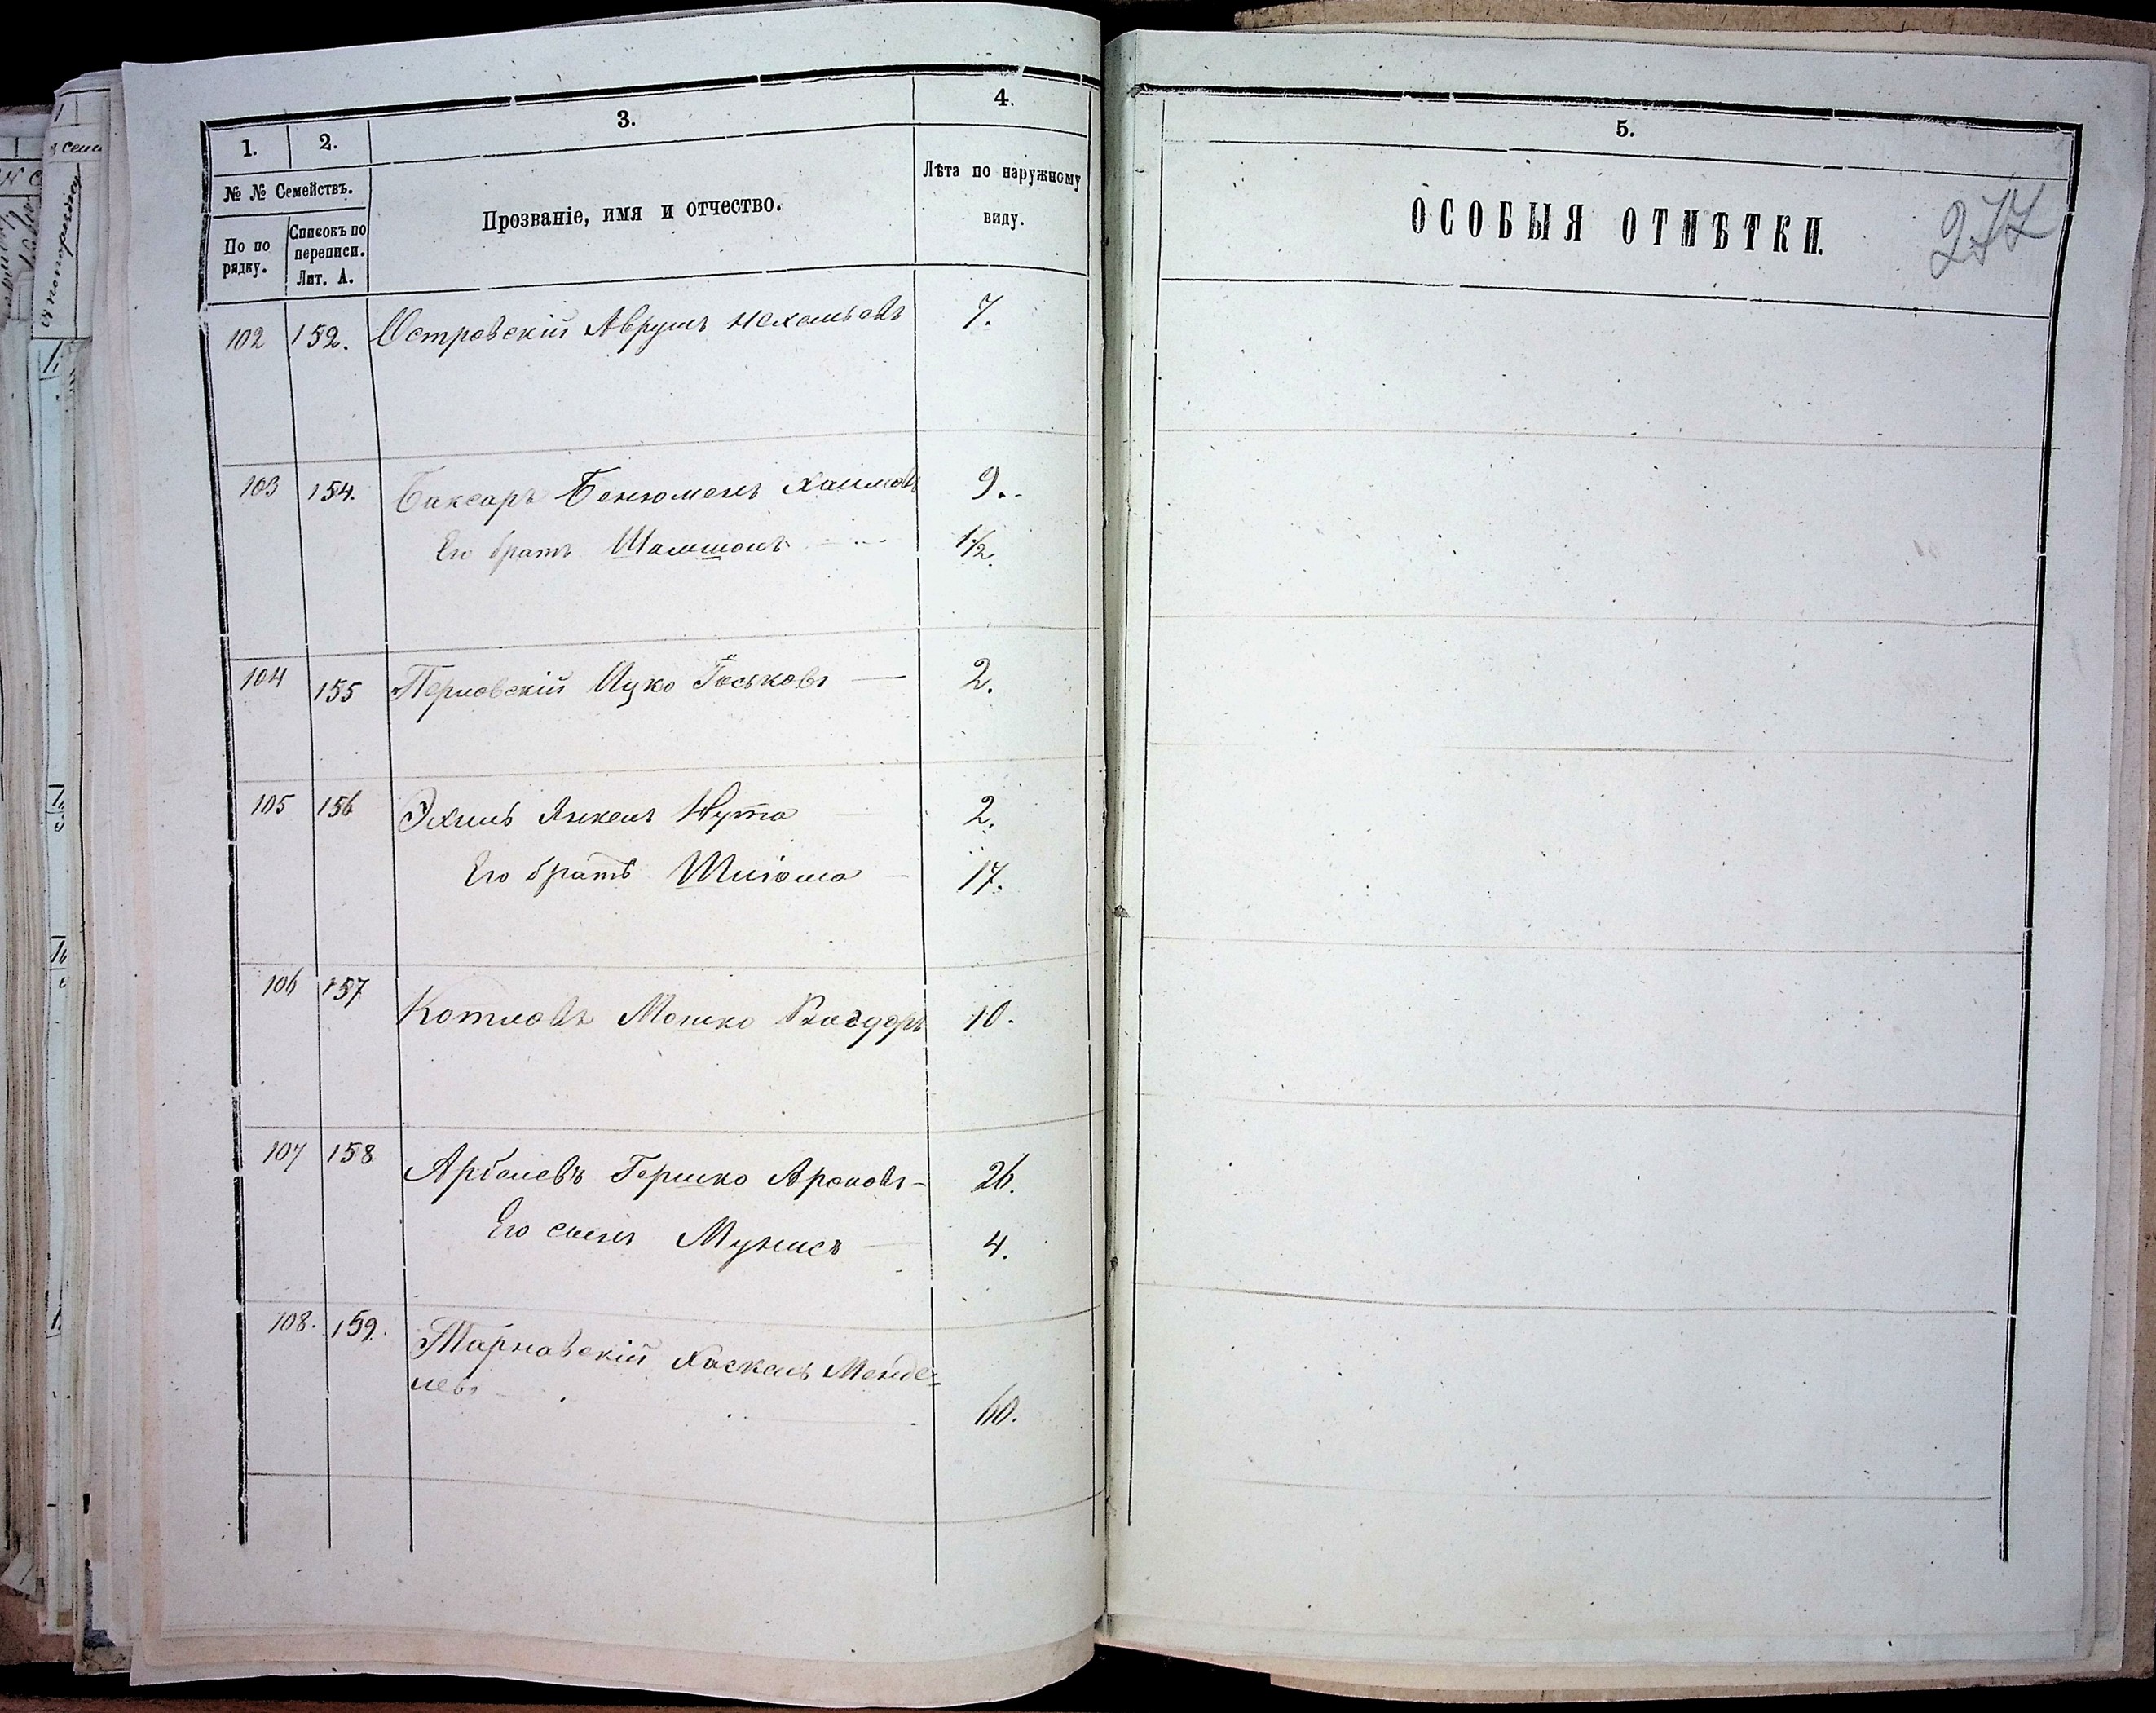 1.
2.
3.
4.
№ № Семействъ.
Прозваніе, имя и отчество.
Лѣта по наружному
виду.
По по
рядку.
Списокъ по
переписи.
Лит. А.
102 152. Островскій Аврумъ 7.
103 154. Баксаръ Бенюменъ Хаимовъ 9.
Его братъ Шамшонъ 1/2.
104 155 Перловскій Ицко Іоськовъ — 2.
105 156 Эхиль Янкель Нута 2.
Его братъ Шліома — 17.
106 157 Котловъ Мошко 10.
107 158 Арбелевъ Гершко Ароновъ — 26.
Его сынъ Мунисъ — 4.
108. 159. Тарнавскій Хаскель Менде=
левъ
60.
5.
ОСОБЫЯ ОТМѢТКИ.
277